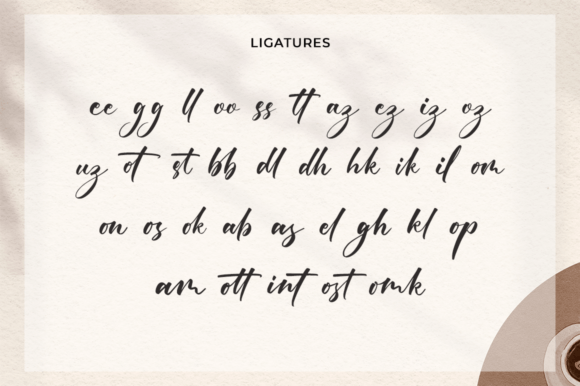 LIGATURES
ee gg ll oo ss tt az ez iz oz
uz ot st bb dl dh hk ik il om
on os ok ab as el gh kl op
am ott int ost omk